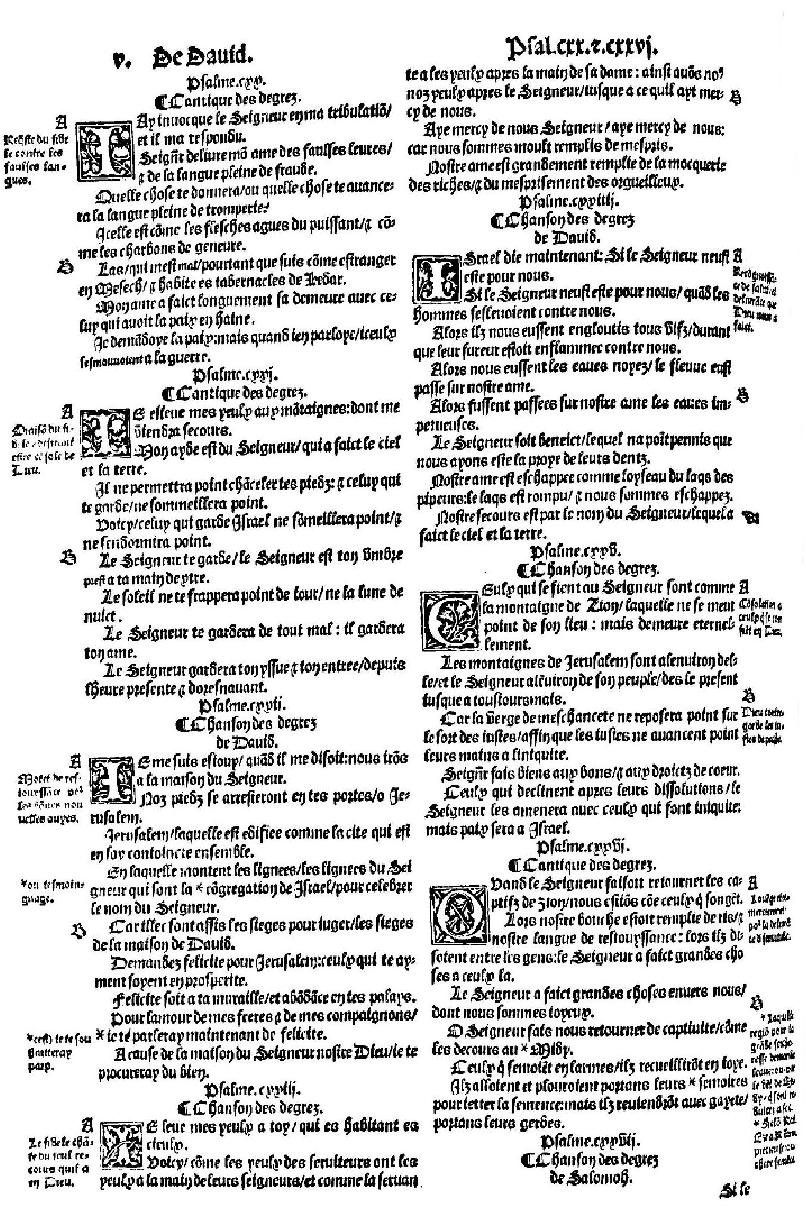 v. De Dauid.
Psalme.cxx.
¶Cantique des degrez.
A
Ay inuocque le Seigneur en ma tribulatiõ/
et il ma respondu.
Seigñr deliure mõ ame des faulses leures/
⁊ de la langue pleine de fraude.
Quelle chose te donnera/ou quelle chose te auance-
ra la langue pleine de tromperie/
Icelle est cõme les flesches agues du puissant/⁊ cõ-
me les charbons de geneure.
B
Las/qui mest mal/pourtant que suis cõme estranger
en Mesech/⁊ habite es tabernacles de Kedar.
Mon ame a faict longuement sa demeure auec ce-
luy qui auoit la paix en haine.
Je demãdoye la paix:mais quand ien parloye/iceulx
sesmouuoient a la guerre.
Psalme.cxxi.
¶Cantique des degrez.
A
E esleue mes yeulx aux mõtaignes:dont me
viendra secours.
Mon ayde est du Seigneur/qui a faict le ciel
et la terre.
Il ne permettra point chãceler tes piedz:⁊ celuy qui
te garde/ne sommeillera point.
Voicy/celuy qui garde Israel ne sõmeillera point/⁊
ne sendormira point.
B
Le Seigneur te garde/le Seigneur est ton vmbre
pres a ta main dextre.
Le soleil ne te frappera point de iour/ne la lune de
nuict.
Le Seigneur te gardera de tout mal : il gardera
ton ame.
Le Seigneur gardera ton yssue ⁊ ton entree/depuis
lheure presente ⁊ doresnauant.
Psalme.cxxii.
¶Chanson des degrez
de Dauid.
A
E me suis esiouy/quãd il me disoit:nous irõs
a la maison du Seigneur.
Noz piedz se arresteront en tes portes/o Je-
rusalem.
Jerusalem/laquelle est edifiee comme la cite qui est
en soy conioincte ensemble.
En laquelle montent les lignees/les lignees du Sei
gneur qui sont la * cõgregation de Israel/pour celebrer
le nom du Seigneur.
B
Car illec sont assis les sieges pour iuger/les sieges
de la maison de Dauid.
Demandez felicite pour Jerusalem:ceulx qui te ay-
ment soyent en prosperite.
Felicite soit a ta muraille/et abõdãce en tes palays.
Pour lamour de mes freres ⁊ de mes compaignons/
* ie te parleray maintenant de felicite.
A cause de la maison du Seigneur nostre Dieu/ie te
procureray du bien.
Psalme.cxxiii.
¶Chanson des degrez.
A
E leue mes yeulx a toy/ qui es habitant es
cieulx.
Voicy/cõme les yeulx des seruiteurs ont les
yeulx a la main de leurs seigneurs/et comme la seruan
Psal.cxx.⁊.cxxvj.
te a les yeulx apres la main de sa dame : ainsi auõs noˀ
noz yeulx apres le Seigneur/iusque a ce quil ayt mer-
B
cy de nous.
Aye mercy de nous Seigneur/aye mercy de nous:
car nous sommes moult remplis de mespris.
Nostre ame est grandement remplie de la mocquerie
des riches/⁊ du mesprisement des orgueilleux.
Psalme.cxxiiij.
¶Chanson des degrez
de Dauid.
Israel die maintenant: Si le Seigneur neust
A
este pour nous.
Si le Seigneur neust este pour nous/ quãd les
hommes sesleuoient contre nous.
Alors ilz nous eussent engloutis tous vifz/durant
que leur fureur estoit enflammee contre nous.
Alors nous eussent les eaues noyez/ le fleuue eust
passe sur nostre ame.
B
Alors fussent passees sur nostre ame les eaues im-
petueuses.
Le Seigneur soit beneict/lequel na point permis que
nous ayons este la proye de leurs dentz.
Nostre ame est eschappee comme loyseau du laqs des
pipeurs:le laqs est rompu/ ⁊ nous sommes eschappez.
Nostre secours est par le nom du Seigneur/lequel a
faict le ciel et la terre.
Psalme.cxxv.
¶Chanson des degrez.
Eulx qui se fient au Seigneur sont comme
A
la montaigne de Zion/laquelle ne se meut
point de son lieu : mais demeure eternel-
lement.
Les montaignes de Jerusalem sont a lenuiron del-
le/et le Seigneur a lẽuiron de son peuple/des le present
iusque a tousiours mais.
B
Car la verge de meschancete ne reposera point sur
le sort des iustes/affin que les iustes ne auancent point
leurs mains a liniquite.
Seigñr fais biens aux bons/⁊ aux droictz de coeur.
Ceulx qui declinent apres leurs dissolutions/le
Seigneur les amenera auec ceulx qui font iniquite:
mais paix sera a Israel.
Psalme.cxxvi.
¶Cantique des degrez.
Quand le Seigneur faisoit retourner les ca-
A
ptifz de Zion/nous estiõs cõe ceulx q̃ songẽt.
Lors nostre bouche estoit remplie de ris/⁊
nostre langue de resiouyssance : lors ilz di-
soient entre les gens:le Seigneur a faict grandes cho
ses a ceulx la.
Le Seigneur a faict grandes choses enuers nous/
B
dont nous sommes ioyeux.
O Seigneur fais nous retourner de captiuite/cõme
les decours au * Midy.
Ceulx q̃ semoiẽt en larmes/ilz recueillirõt en ioye.
Ilz alloient et plouroient portans leurs * semoires
pour ietter la semence:mais ilz reuiendrõt auec gayete/
portans leurs gerbes.
Psalme.cxxvij.
¶Chanson des degrez
de Salomoh.
Si le